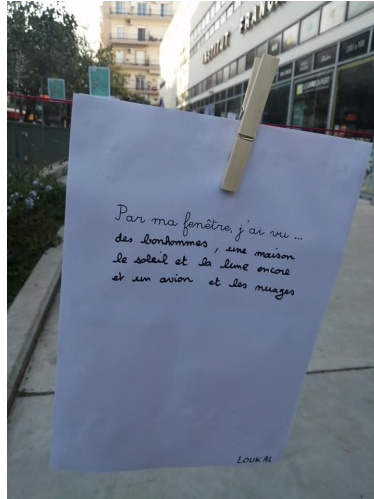 INSTITUT FRANÇAIS
Par ma fenêtre, j'ai vu ...
des bonhommes, une maison
le soleil et la lune encore
et un avion et les nuages
LOUKAS